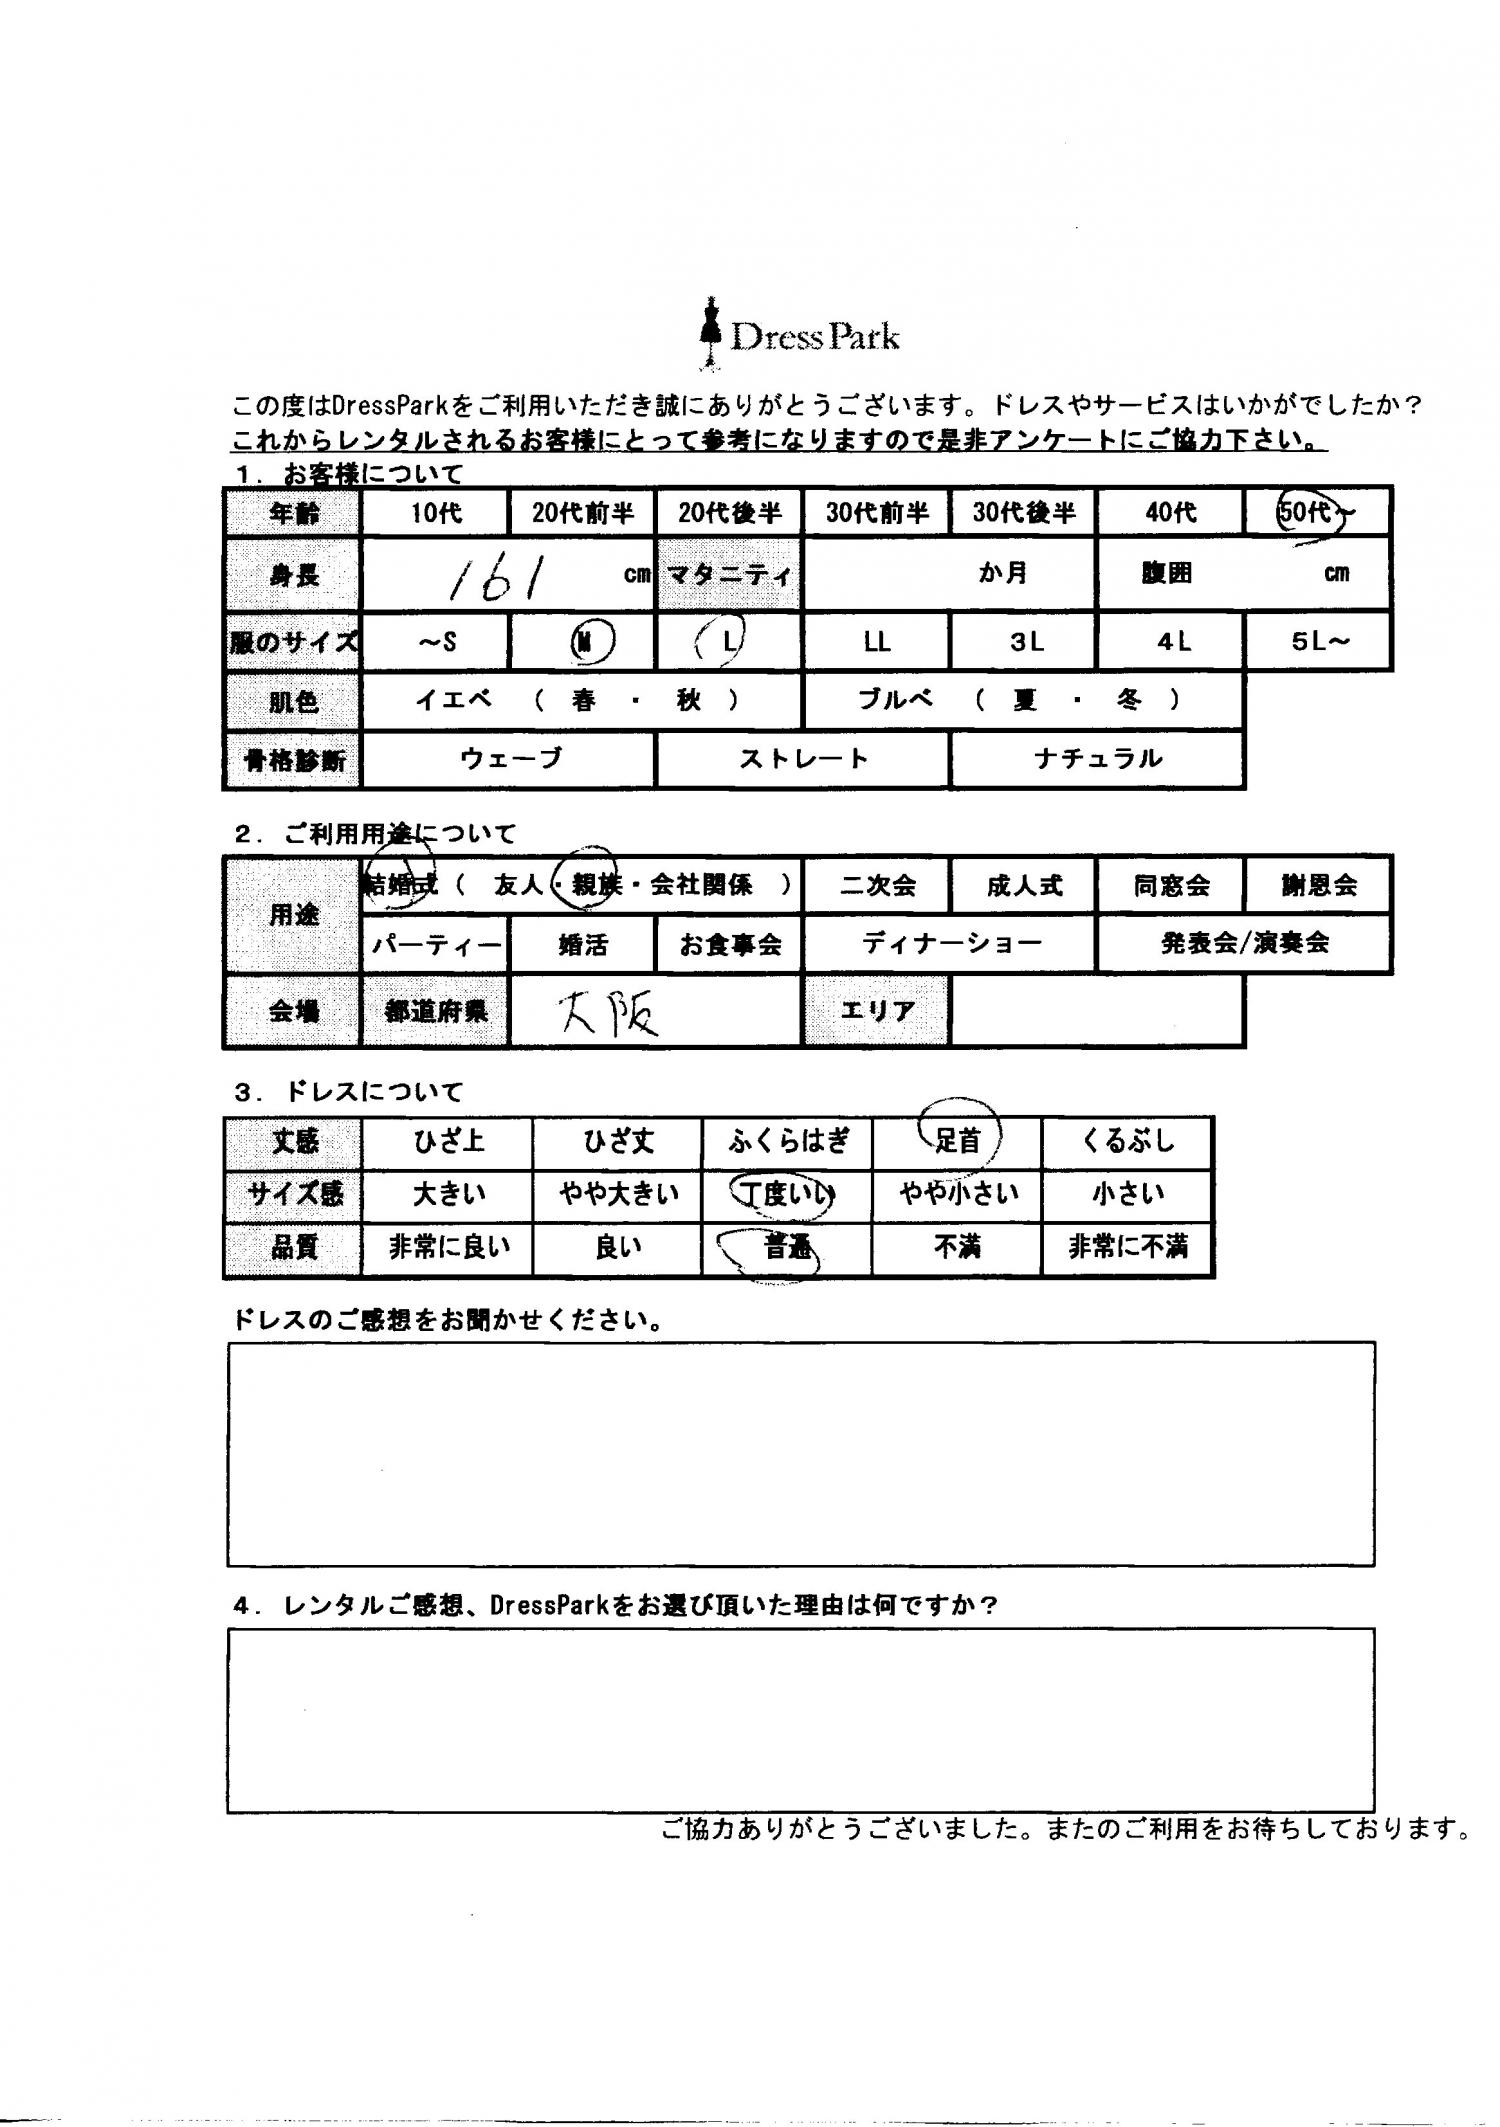 DressPark
この度はDressParkをご利用いただき誠にありがとうございます。ドレスやサービスはいかがでしたか？
これからレンタルされるお客様にとって参考になりますので是非アンケートにご協力下さい。
１．お客様について
年齢 10代 20代前半 20代後半 30代前半 30代後半 40代 50代～
身長 161 cm マタニティ か月 腹囲 cm
服のサイズ ～S M L LL 3L 4L 5L～
肌色 イエベ （ 春 ・ 秋 ） ブルベ （ 夏 ・ 冬 ）
骨格診断 ウェーブ ストレート ナチュラル
２．ご利用用途について
用途 結婚式（ 友人・親族・会社関係 ） 二次会 成人式 同窓会 謝恩会
パーティー 婚活 お食事会 ディナーショー 発表会/演奏会
会場 都道府県 大阪 エリア
３．ドレスについて
丈感 ひざ上 ひざ丈 ふくらはぎ 足首 くるぶし
サイズ感 大きい やや大きい 丁度いい やや小さい 小さい
品質 非常に良い 良い 普通 不満 非常に不満
ドレスのご感想をお聞かせください。
４．レンタルご感想、DressParkをお選び頂いた理由は何ですか？
ご協力ありがとうございました。またのご利用をお待ちしております。